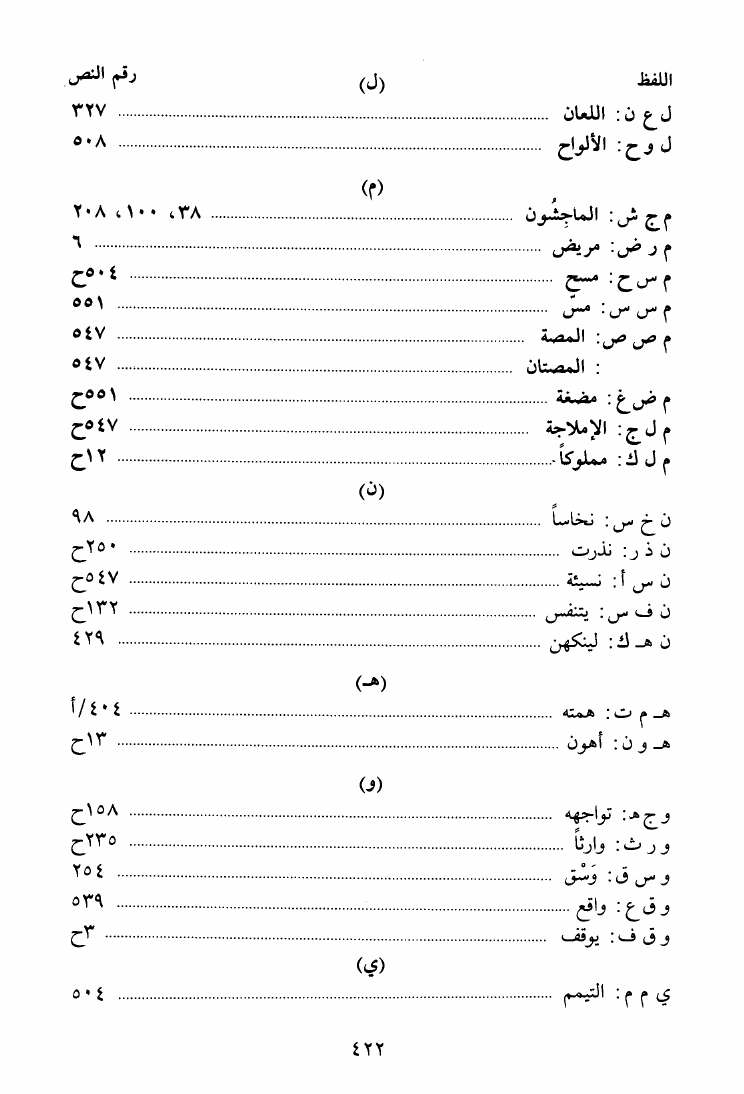 اللفظ (ل) رقم النص
ل ع ن: اللعان ........ ٣٢٧
ل و ح: الألواح ........ ٥٠٨
(م)
م ج ش: الماجِشُون ........ ٣٨، ١٠٠، ٢٠٨
م ر ض: مريض ........ ٦
م س ح: مسح ........ ٥٠٤ح
م س س: مسّ ........ ٥٥١
م ص ص: المصة ........ ٥٤٧
: المصتان ........ ٥٤٧
م ض غ: مضغة ........ ٥٥١ح
م ل ج: الإملاجة ........ ٥٤٧ح
م ل ك: مملوكاً ........ ١٢ح
(ن)
ن خ س: نخاساً ........ ٩٨
ن ذ ر: نذرت ........ ٢٥٠ح
ن س أ: نسيئة ........ ٥٤٧ح
ن ف س: يتنفس ........ ١٣٢ح
ن هـ ك: لينكهن ........ ٤٢٩
(هـ)
هـ م ت: همته ........ ٤٠٤/أ
هـ و ن: أهون ........ ١٣ح
(و)
و ج ه: تواجهه ........ ١٥٨ح
و ر ث: وارثاً ........ ٢٣٥ح
و س ق: وَسْق ........ ٢٥٤
و ق ع: واقع ........ ٥٣٩
و ق ف: يوقف ........ ٣ح
(ي)
ي م م: التيمم ........ ٥٠٤
٤٢٢